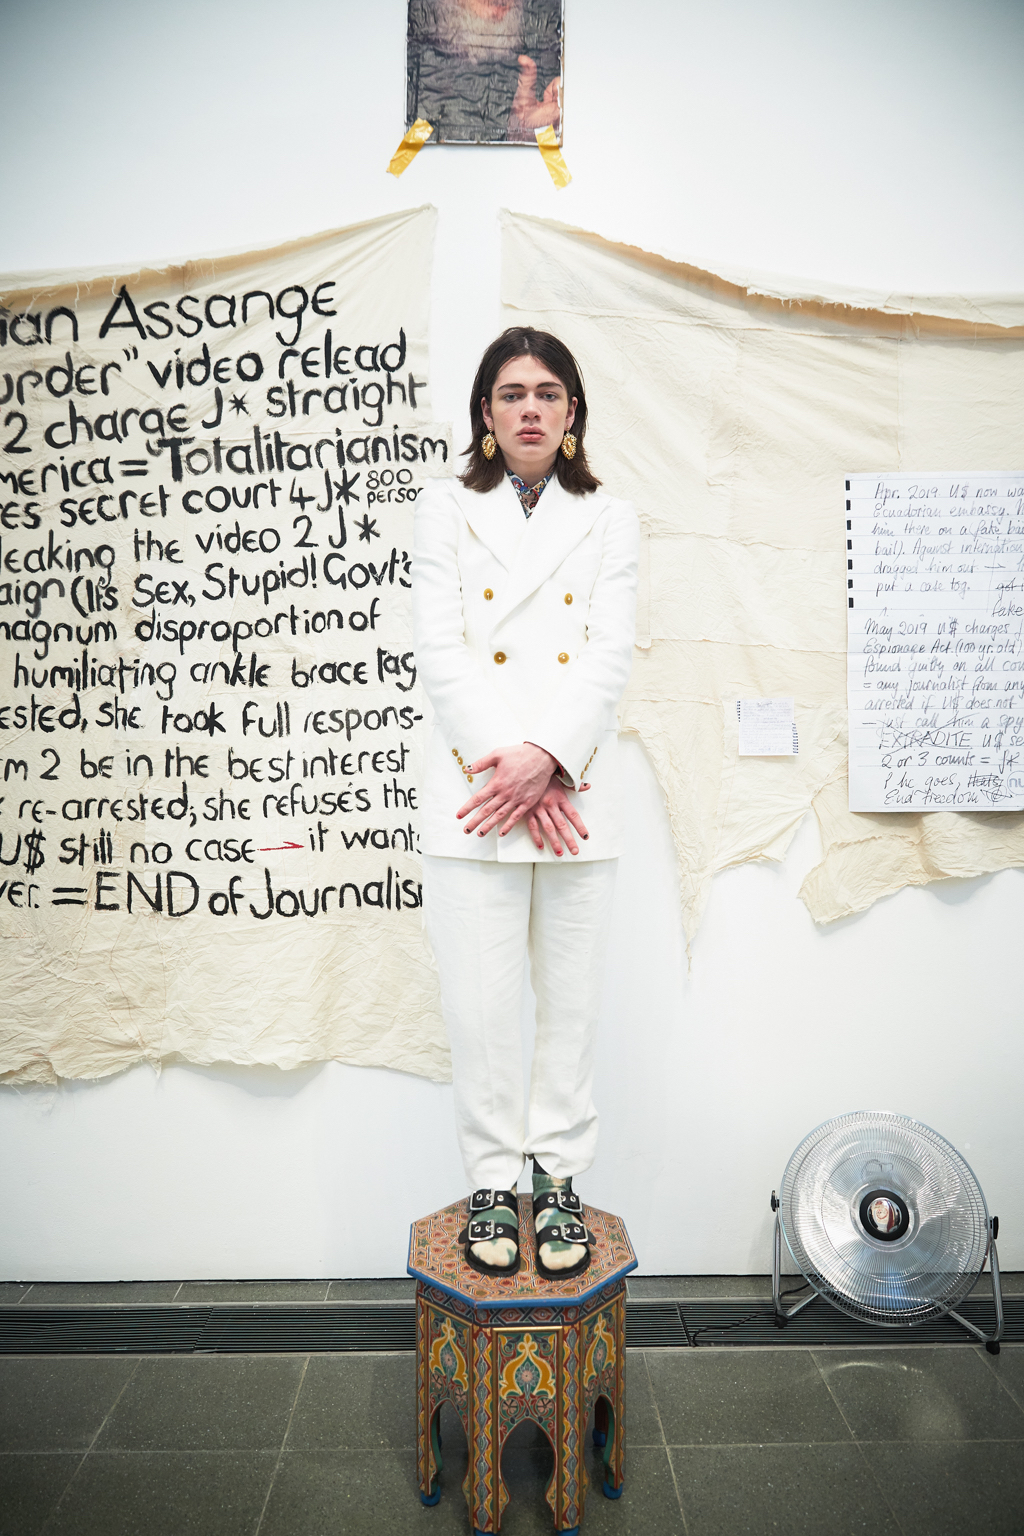 ian Assange
urder" video relead
2 charge J* straight
merica = "Totalitarianism
es secret court 4 J* 800 person
leaking the video 2 J*
aign (It's Sex, Stupid! Govt's
magnum disproportion of
humiliating ankle brace tag
ested, she took full respons-
m 2 be in the best interest
re-arrested; she refuses the
U$ still no case → it wants
ver. = END of Journalis
Apr. 2019 U$ now wa
Ecuadorian embassy.
him there on a fake bai
bail). Against interruption
dragged him out →
put a case tog. get
fake
May 2019 U$ charges
Espionage Act (100 yr. old)
found guilty on all cou
= any journalist from any
arrested if U$ does not
— just call him a spy
EXTRADITE U$ se
2 or 3 counts = J*
he goes,
End freedom